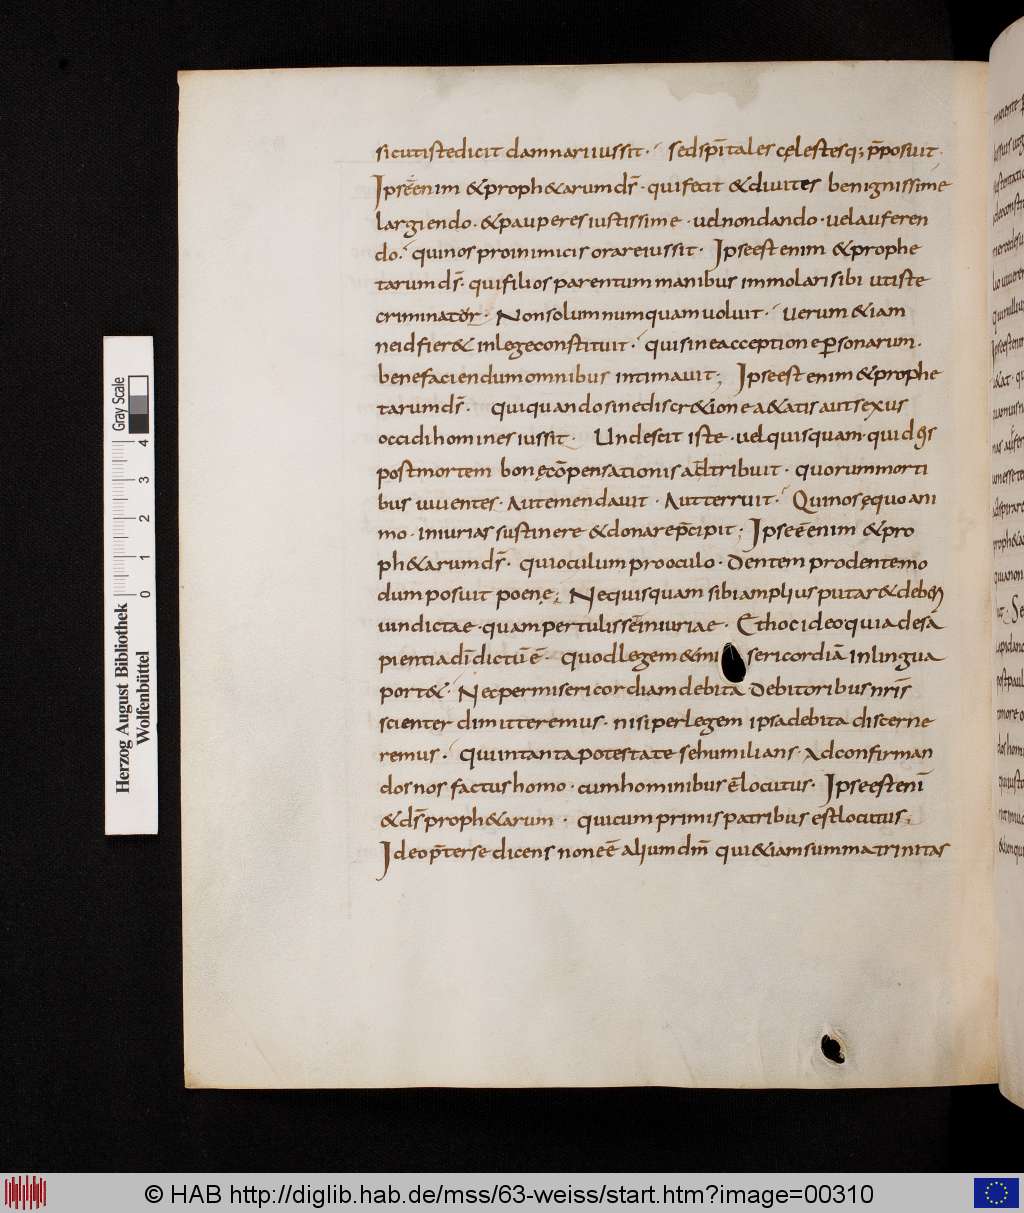 sicut iste dicit damnari iussit· sed sp̄itales cęlestesq; p̄posuit·
Ipsē enim & proph&arum dī· qui fecit & diuites benignissime
largiendo· & pauperes iustissime· uel non dando· uel auferen
do· qui nos pro inimicis orare iussit· Ipse est enim & prophe
tarum dī· qui filios parentum manibus immolari sibi ut iste
criminator· Non solum numquam uoluit· Uerum & iam
ne id fier& in lege constituit· qui sine acceptione personarum·
benefaciendum omnibus intimauit; Ipse est enim & prophe
tarum dī· qui quando sine discr&ione a&atis aut sexus
occidi homines iussit· Unde scit iste· uel quisquam· qui d
post mortem bonę cōpensationis adtribuit· quorum morti
bus uiuentes· Aut emendauit· Aut terruit· Qui nos ęquo ani
mo· iniurias sustinere & donare p̄cipit; Ipse ē enim & pro
ph&arum dī· qui oculum pro oculo· Dentem pro dente mo
dum posuit poenę; Ne quisquam sibi amplius putar& deb
uindictae· quam pertulisse iniuriae· Et hoc ideo quia de sa
pientia dī dictū ē· quod legem & misericordiā in lingua
port&· Nec per misericordiam debita Debitoribus nrīs
scienter dimitteremus· nisi per legem ipsa debita discerne
remus· Qui in tanta potestate se humilians· Ad confirman
dos nos factus homo· cum hominibus ē locutus· Ipse est enī
& dī proph&arum· qui cum primis patribus est locutus;
Ideo p̄ter se dicens non eē alium dm̄ qui & iam summa trinitas
Herzog August Bibliothek
Wolfenbüttel
0 1 2 3 4
Gray Scale
© HAB http://diglib.hab.de/mss/63-weiss/start.htm?image=00310